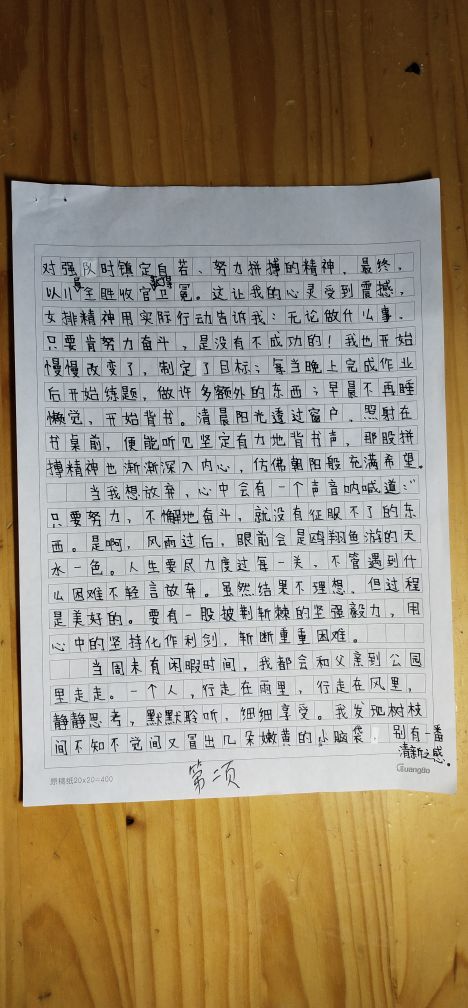 对强队时镇定自若、努力拼搏的精神，最终，
以小最全胜收官获得卫冕。这让我的心灵受到震撼，
女排精神用实际行动告诉我：无论做什么事，
只要肯努力奋斗，是没有不成功的！我也开始
慢慢改变了，制定了目标；每当晚上完成作业
后开始练题，做许多额外的东西；早晨不再睡
懒觉，开始背书。清晨阳光透过窗户，照射在
书桌前，便能听见坚定有力地背书声，那股拼
搏精神也渐渐深入内心，仿佛朝阳般充满希望。
当我想放弃，心中会有一个声音呐喊道：“
只要努力，不懈地奋斗，就没有征服不了的东
西。是啊，风雨过后，眼前会是鸥翔鱼游的天
水一色。人生要尽力度过每一关，不管遇到什
么困难不轻言放弃。虽然结果不理想，但过程
是美好的。要有一股披荆斩棘的坚强毅力，用
心中的坚持化作利剑，斩断重重困难。
当周末有闲暇时间，我都会和父亲到公园
里走走。一个人，行走在雨里，行走在风里，
静静思考，默默聆听，细细享受。我发现树枝
间不知不觉间又冒出几朵嫩黄的小脑袋，别有一番
清新之感。
原稿纸20x20=400
GuangBo
第二页